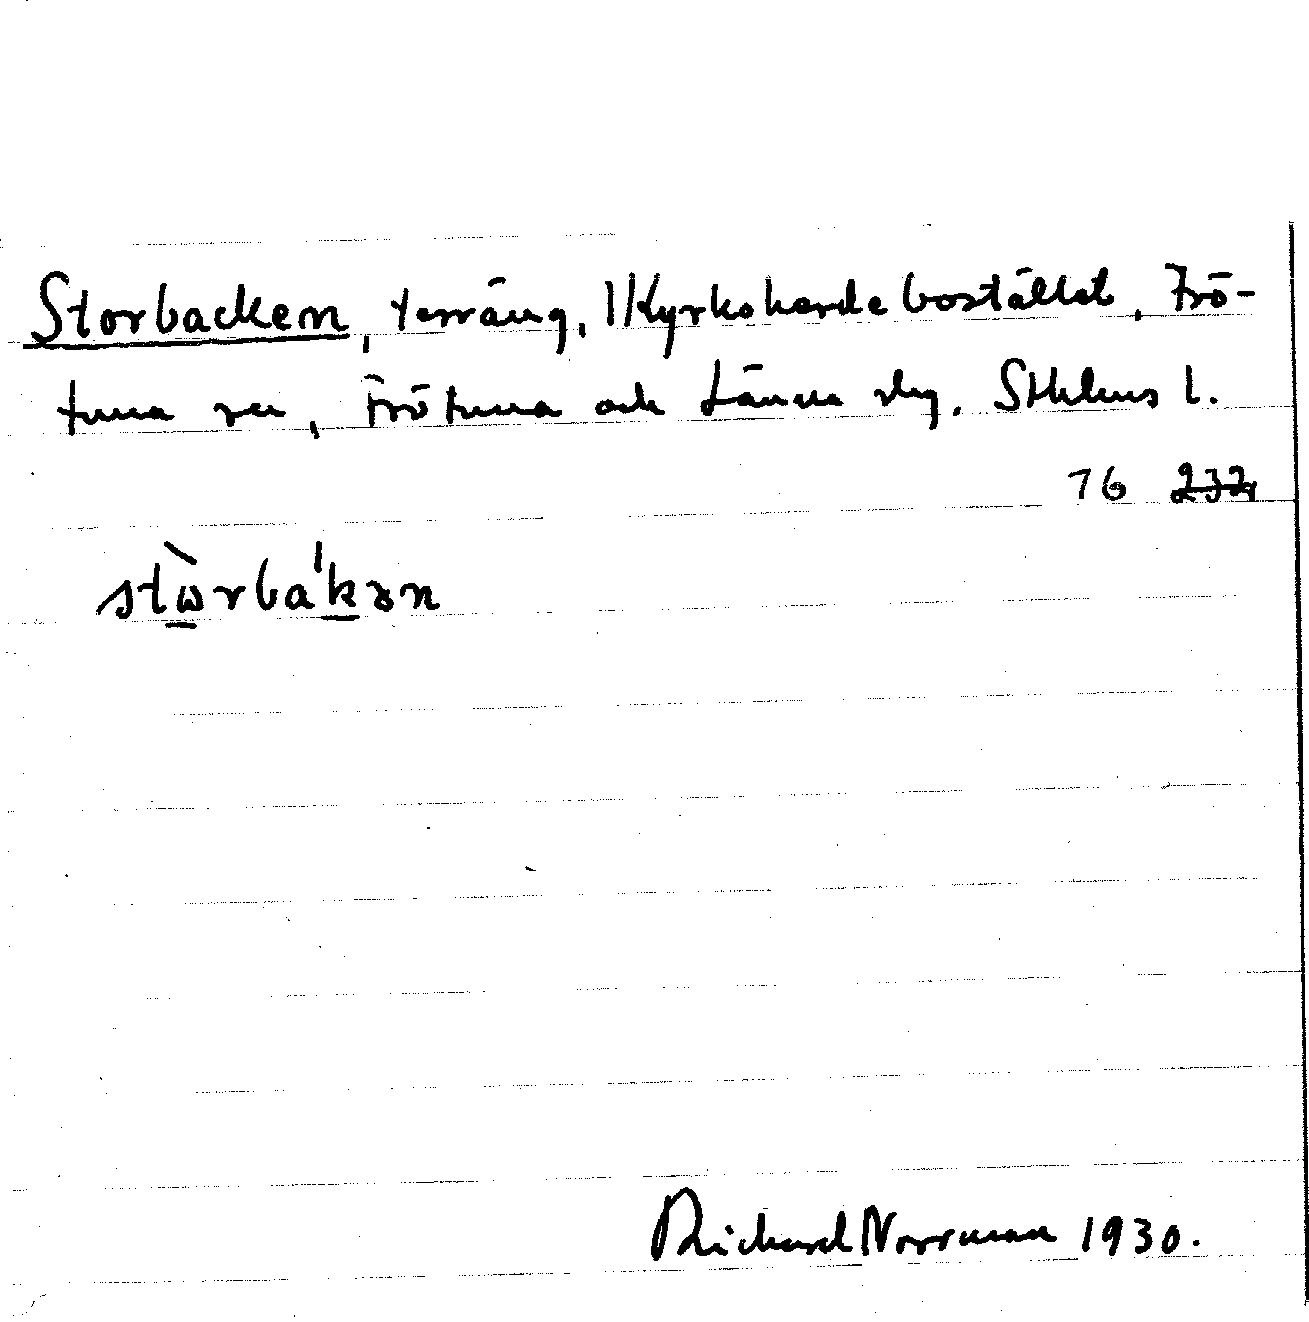 Storbacken, terräng, Kyrkoherdebostället, Frö-
tuna sn, Frötuna och Länna skg. Sthlms l.
76 232
stωrba'kən
Richard Norrman 1930.